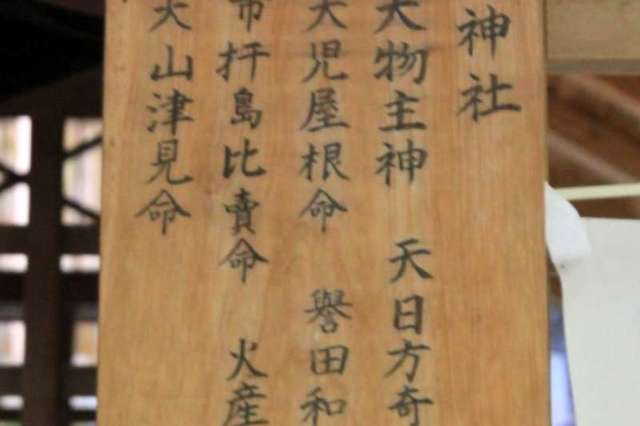 神社
大物主神 天日方奇
天児屋根命 譽田和
市杵島比賣命 火産
大山津見命